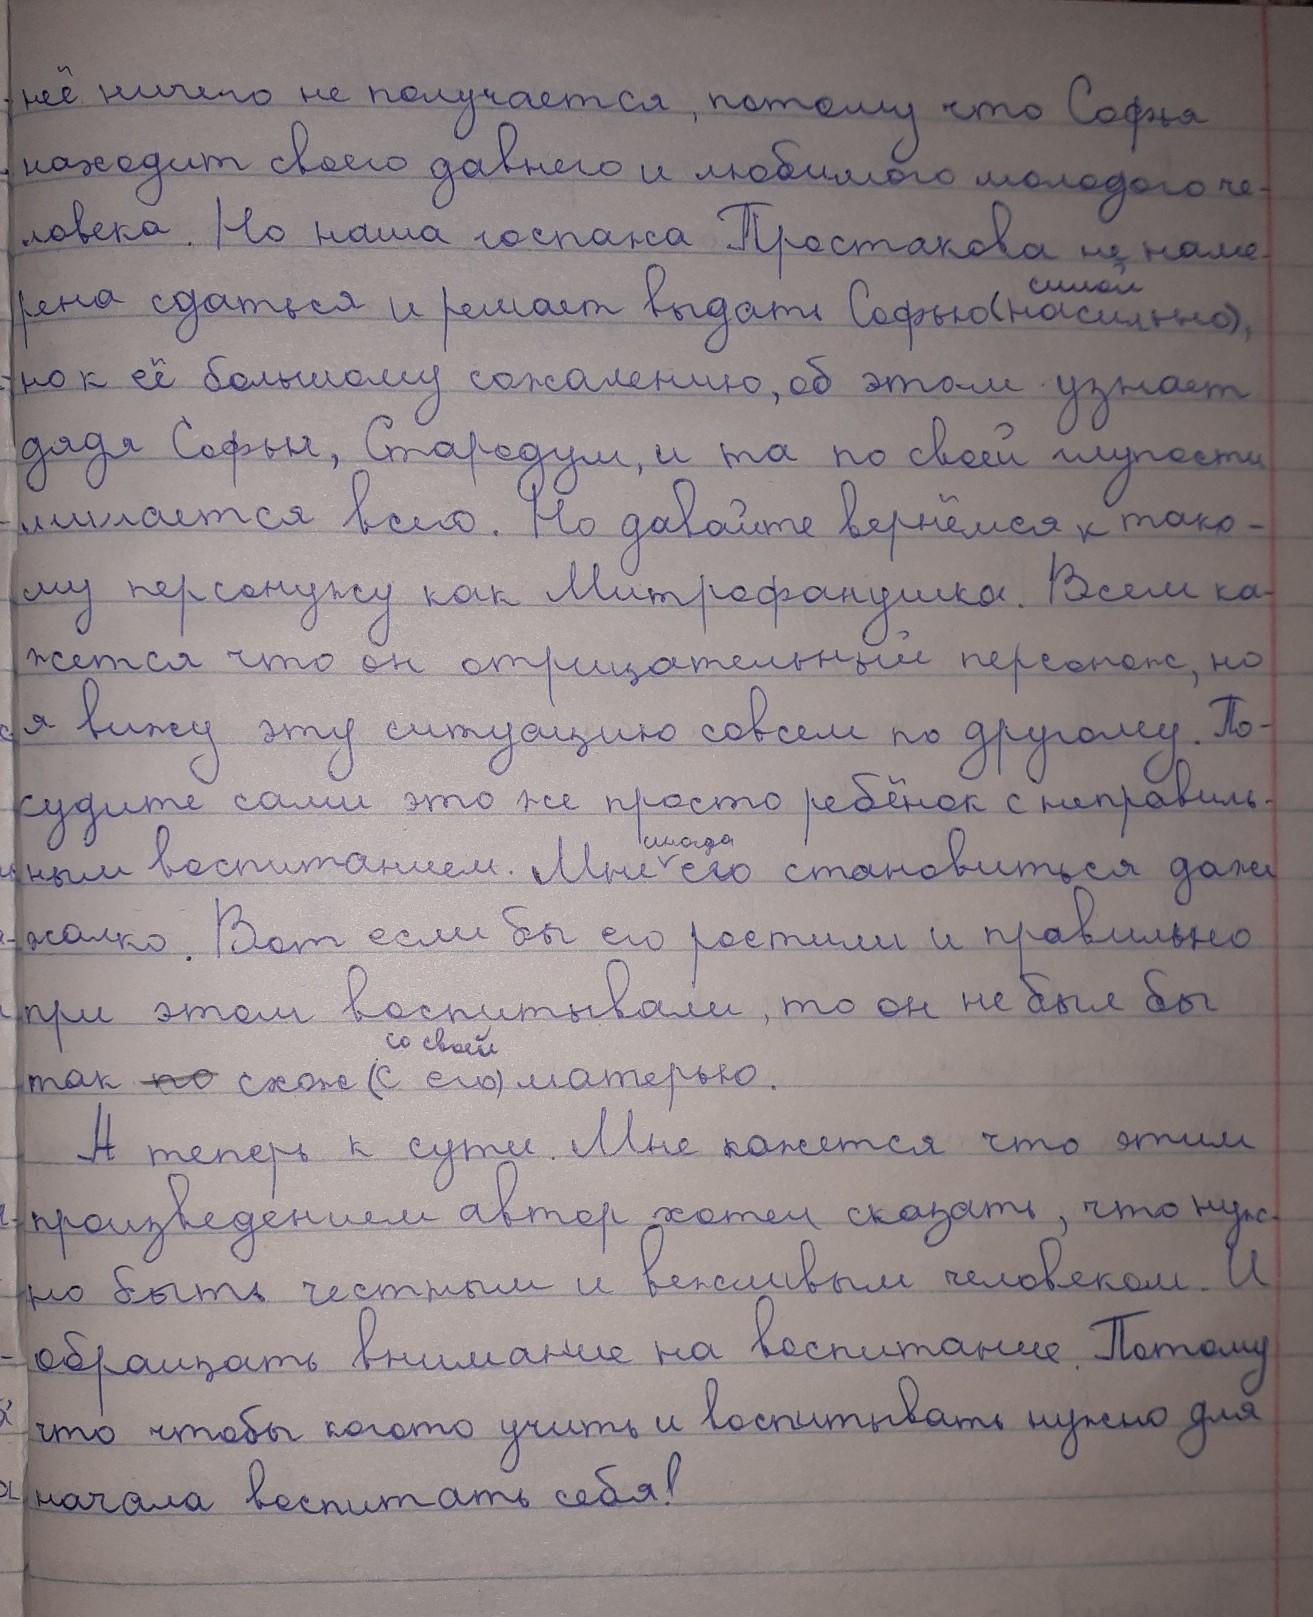 неё ничего не получается, потому что Софья
находит своего давнего и любимого молодого че-
ловека. Но наша госпажа Простакова не наме-
рена сдаться и решает выдать Софью (насильно),
силой
но к её большому сожалению, об этом узнает
дядя Софьи, Стародум, и та по своей глупости
лишается всего. Но давайте вернёмся к тако-
му персонужу как Митрофанушка. Всем ка-
жется что он отрицательный персонаж, но
я вижу эту ситуацию совсем по другому. По-
судите сами это же просто ребёнок с неправиль-
ным воспитанием. Мне его становиться даже
жалко. Вот если бы его ростили и правильно
при этом воспитывали, то он не был бы
со своей
так по схож (с его) матерью.
А теперь к сути. Мне кажется что этим
произведением автор хотел сказать, что нуж-
но быть честным и вежливым человеком. И
обращать внимание на воспитание. Потому
что чтобы когото учить и воспитывать нужно для
начала воспитать себя!